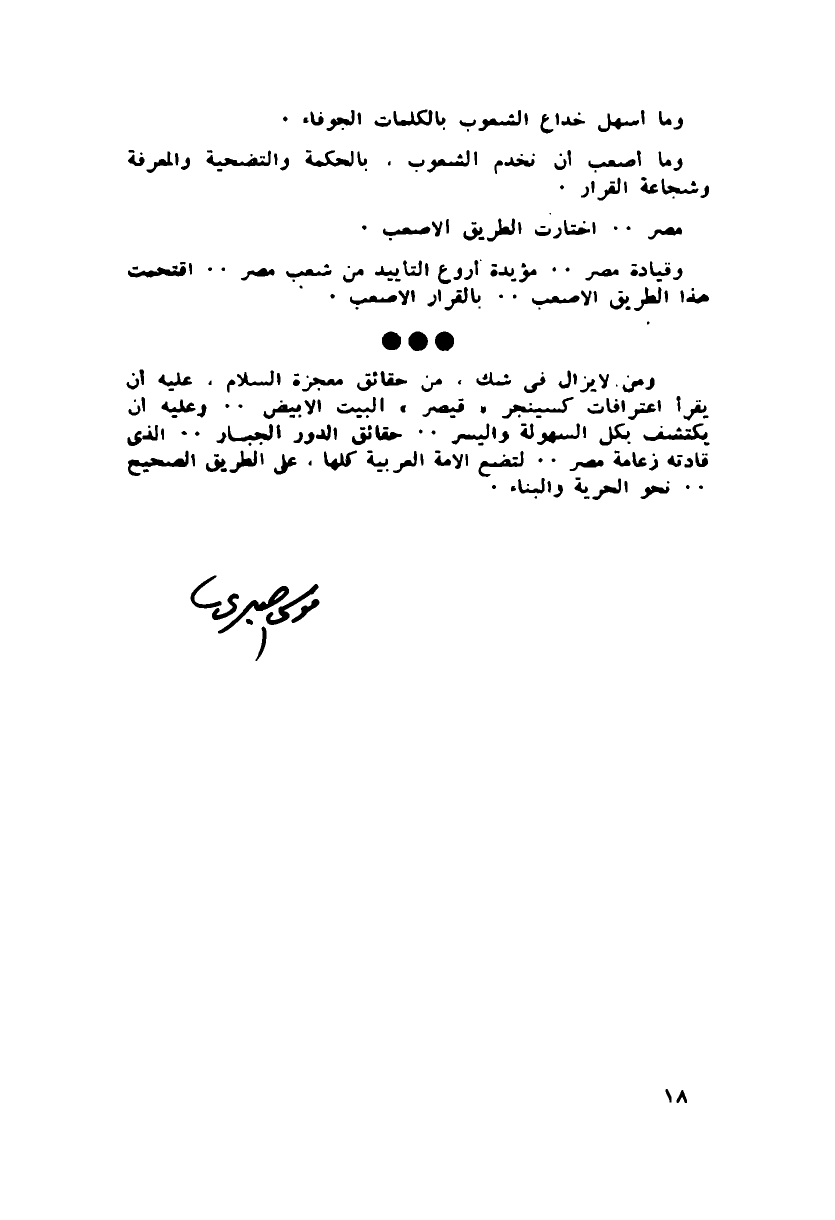 وما أسهل خداع الشعوب بالكلمات الجوفاء ٠
وما أصعب أن نخدم الشعوب ، بالحكمة والتضحية والمعرفة
وشجاعة القرار ٠
مصر ٠٠ اختارت الطريق الاصعب ٠
وقيادة مصر ٠٠ مؤيدة أروع التأييد من شعب مصر ٠٠ اقتحمت
هذا الطريق الاصعب ٠٠ بالقرار الاصعب ٠
●●●
ومن لايزال فى شك ، من حقائق معجزة السلام ، عليه أن
يقرأ اعترافات كسينجر « قيصر » البيت الابيض ٠٠ وعليه أن
يكتشف بكل السهولة واليسر ٠٠ حقائق الدور الجبار ٠٠ الذى
قادته زعامة مصر ٠٠ لتضع الامة العربية كلها ، على الطريق الصحيح
٠٠ نحو الحرية والبناء ٠
موسى صبرى
١٨